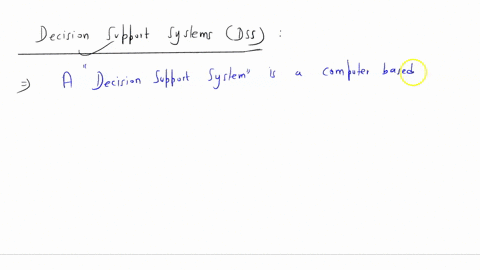 Decision Support Systems (DSS) :
⇒ A "Decision Support System" is a computer based